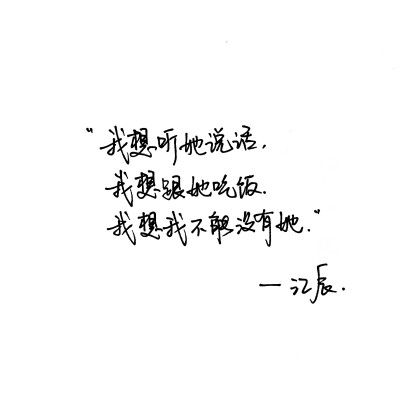 “我想听她说话.
我想跟她吃饭.
我想我不能没有她.”
一江辰.